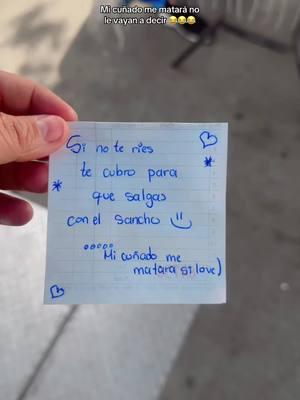 Mi cuñado me matará no
le vayan a decir 😂😂😂
Si no te ries
te cubro para
que salgas
con el sancho
Mi cuñado me
matara si love)